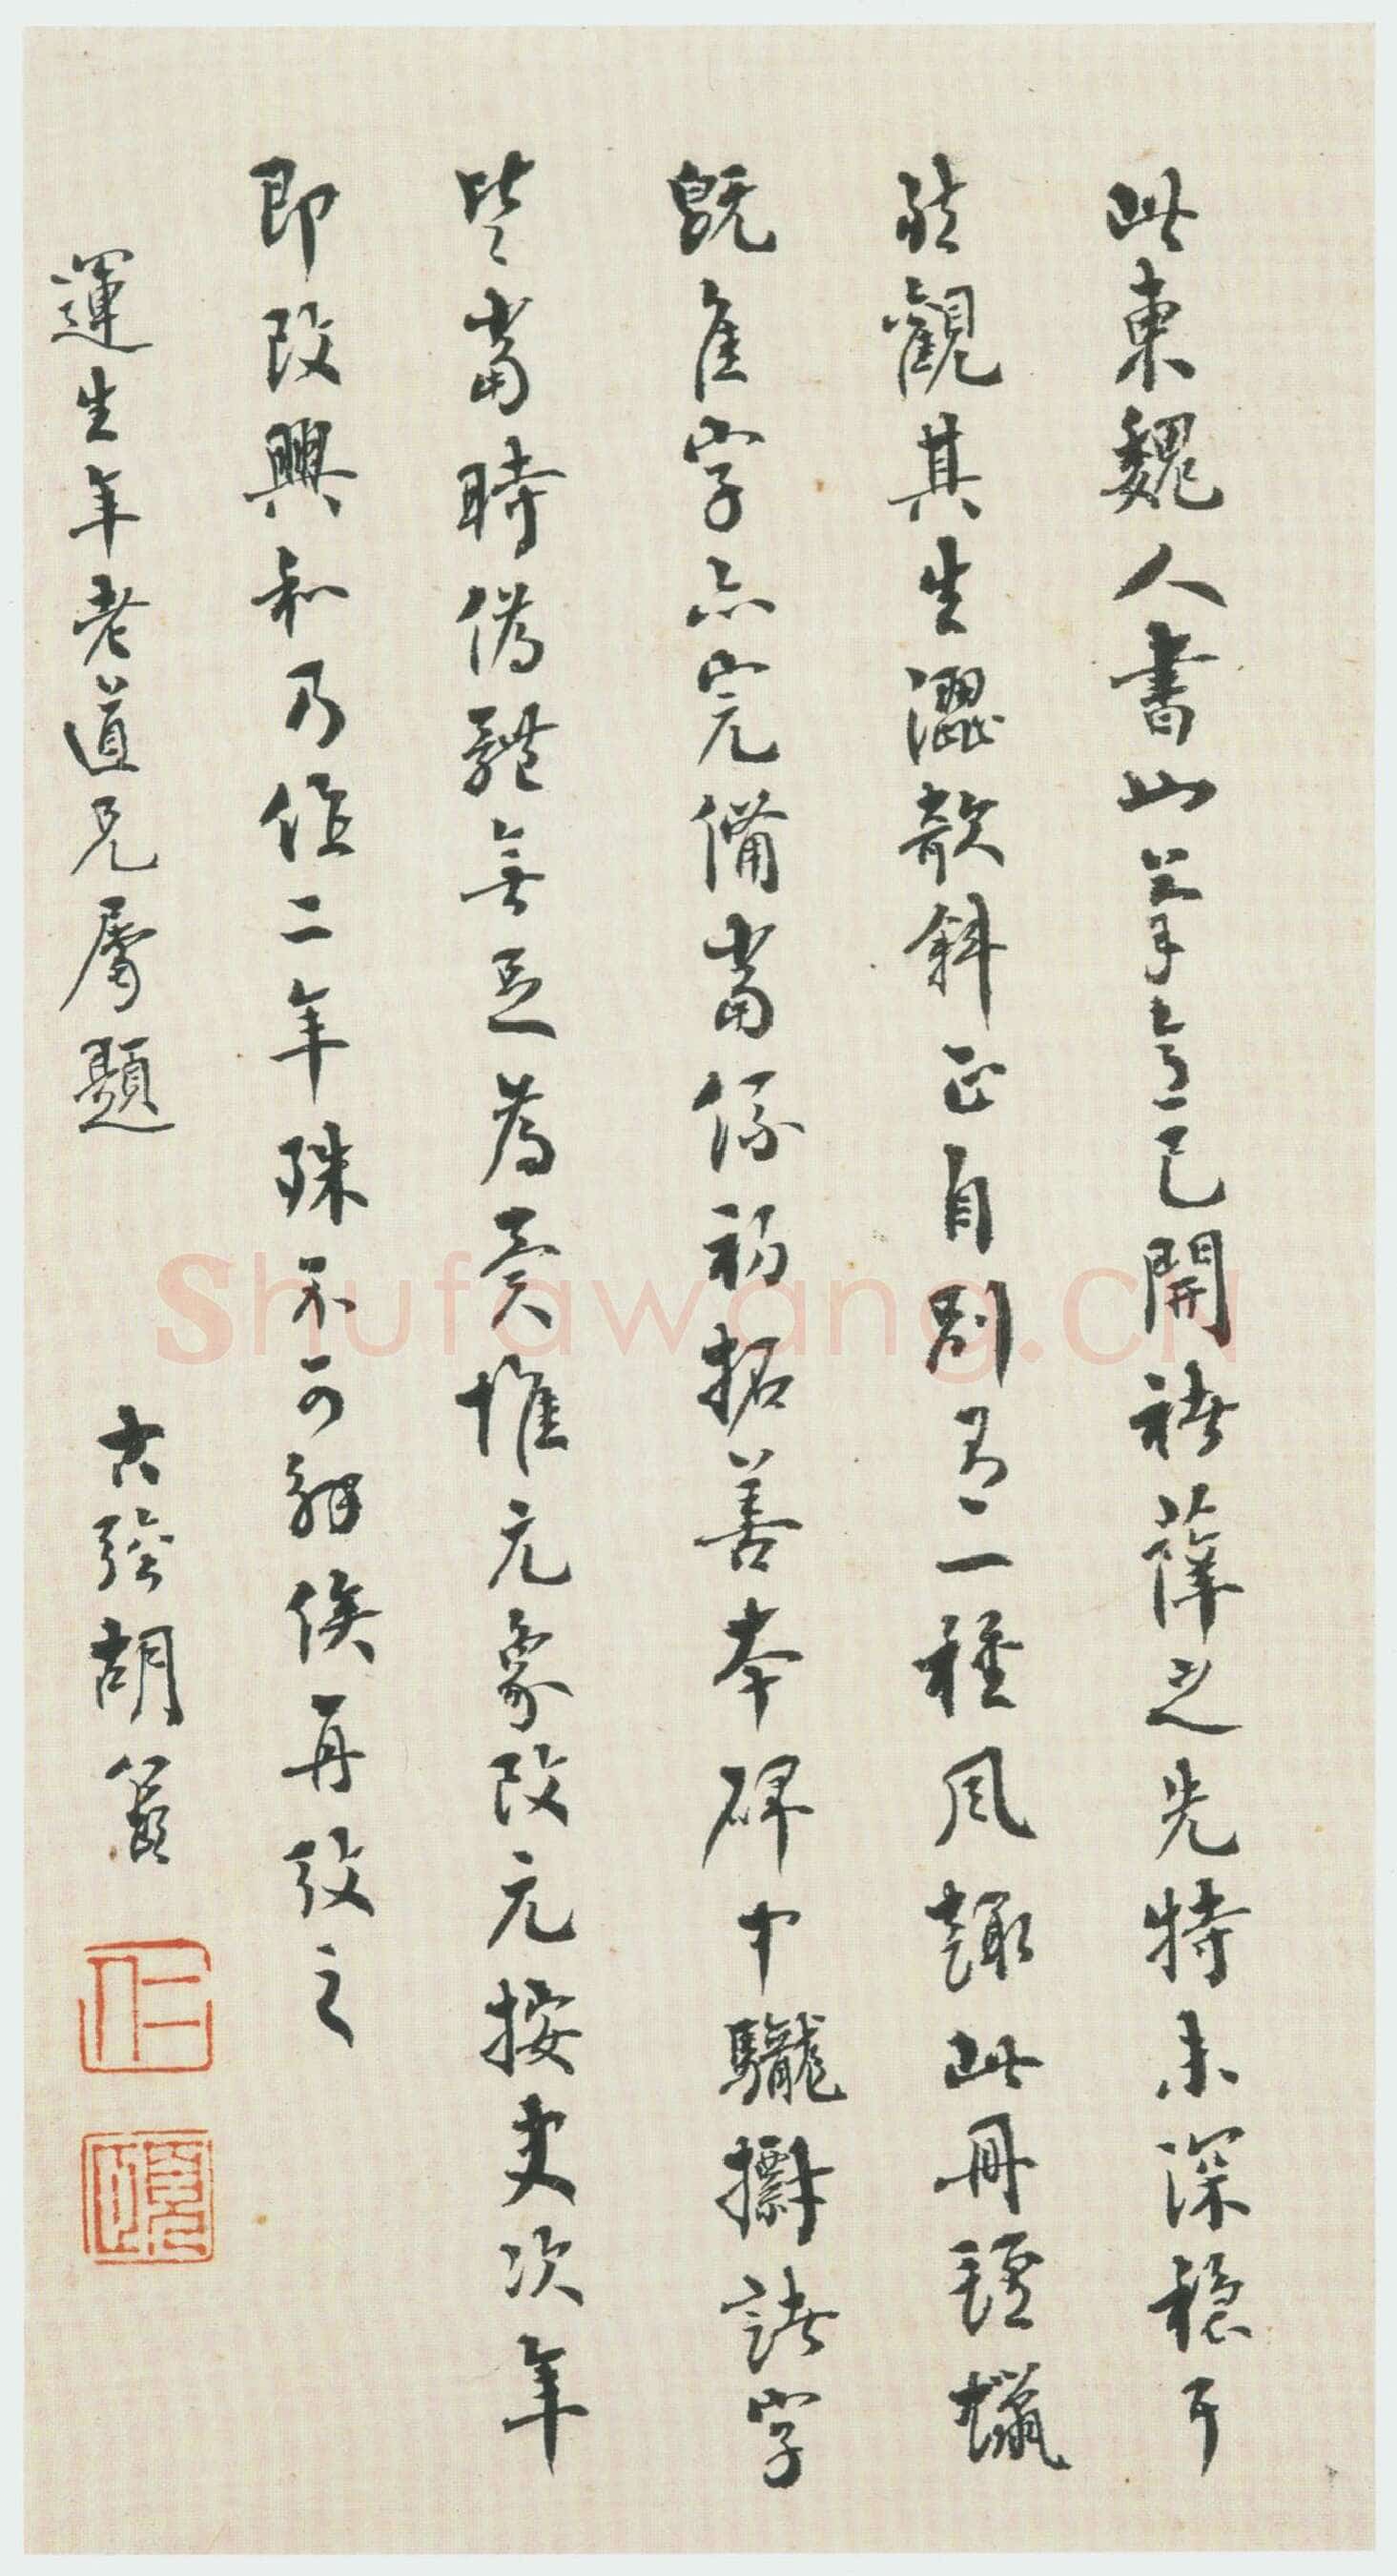 此東魏人書也筆意已開褚薛之先特未深穩耳
然觀其生澀欹斜正自別有一種風趣此冊氊蠟
既佳字亦完備當係初拓善本碑中諸字
皆當時僞體無足為異惟元象改元按史次年
即改興和乃作二年殊不可解俟再攷之
運生年老道兄屬題
胡
Shufawang.cn